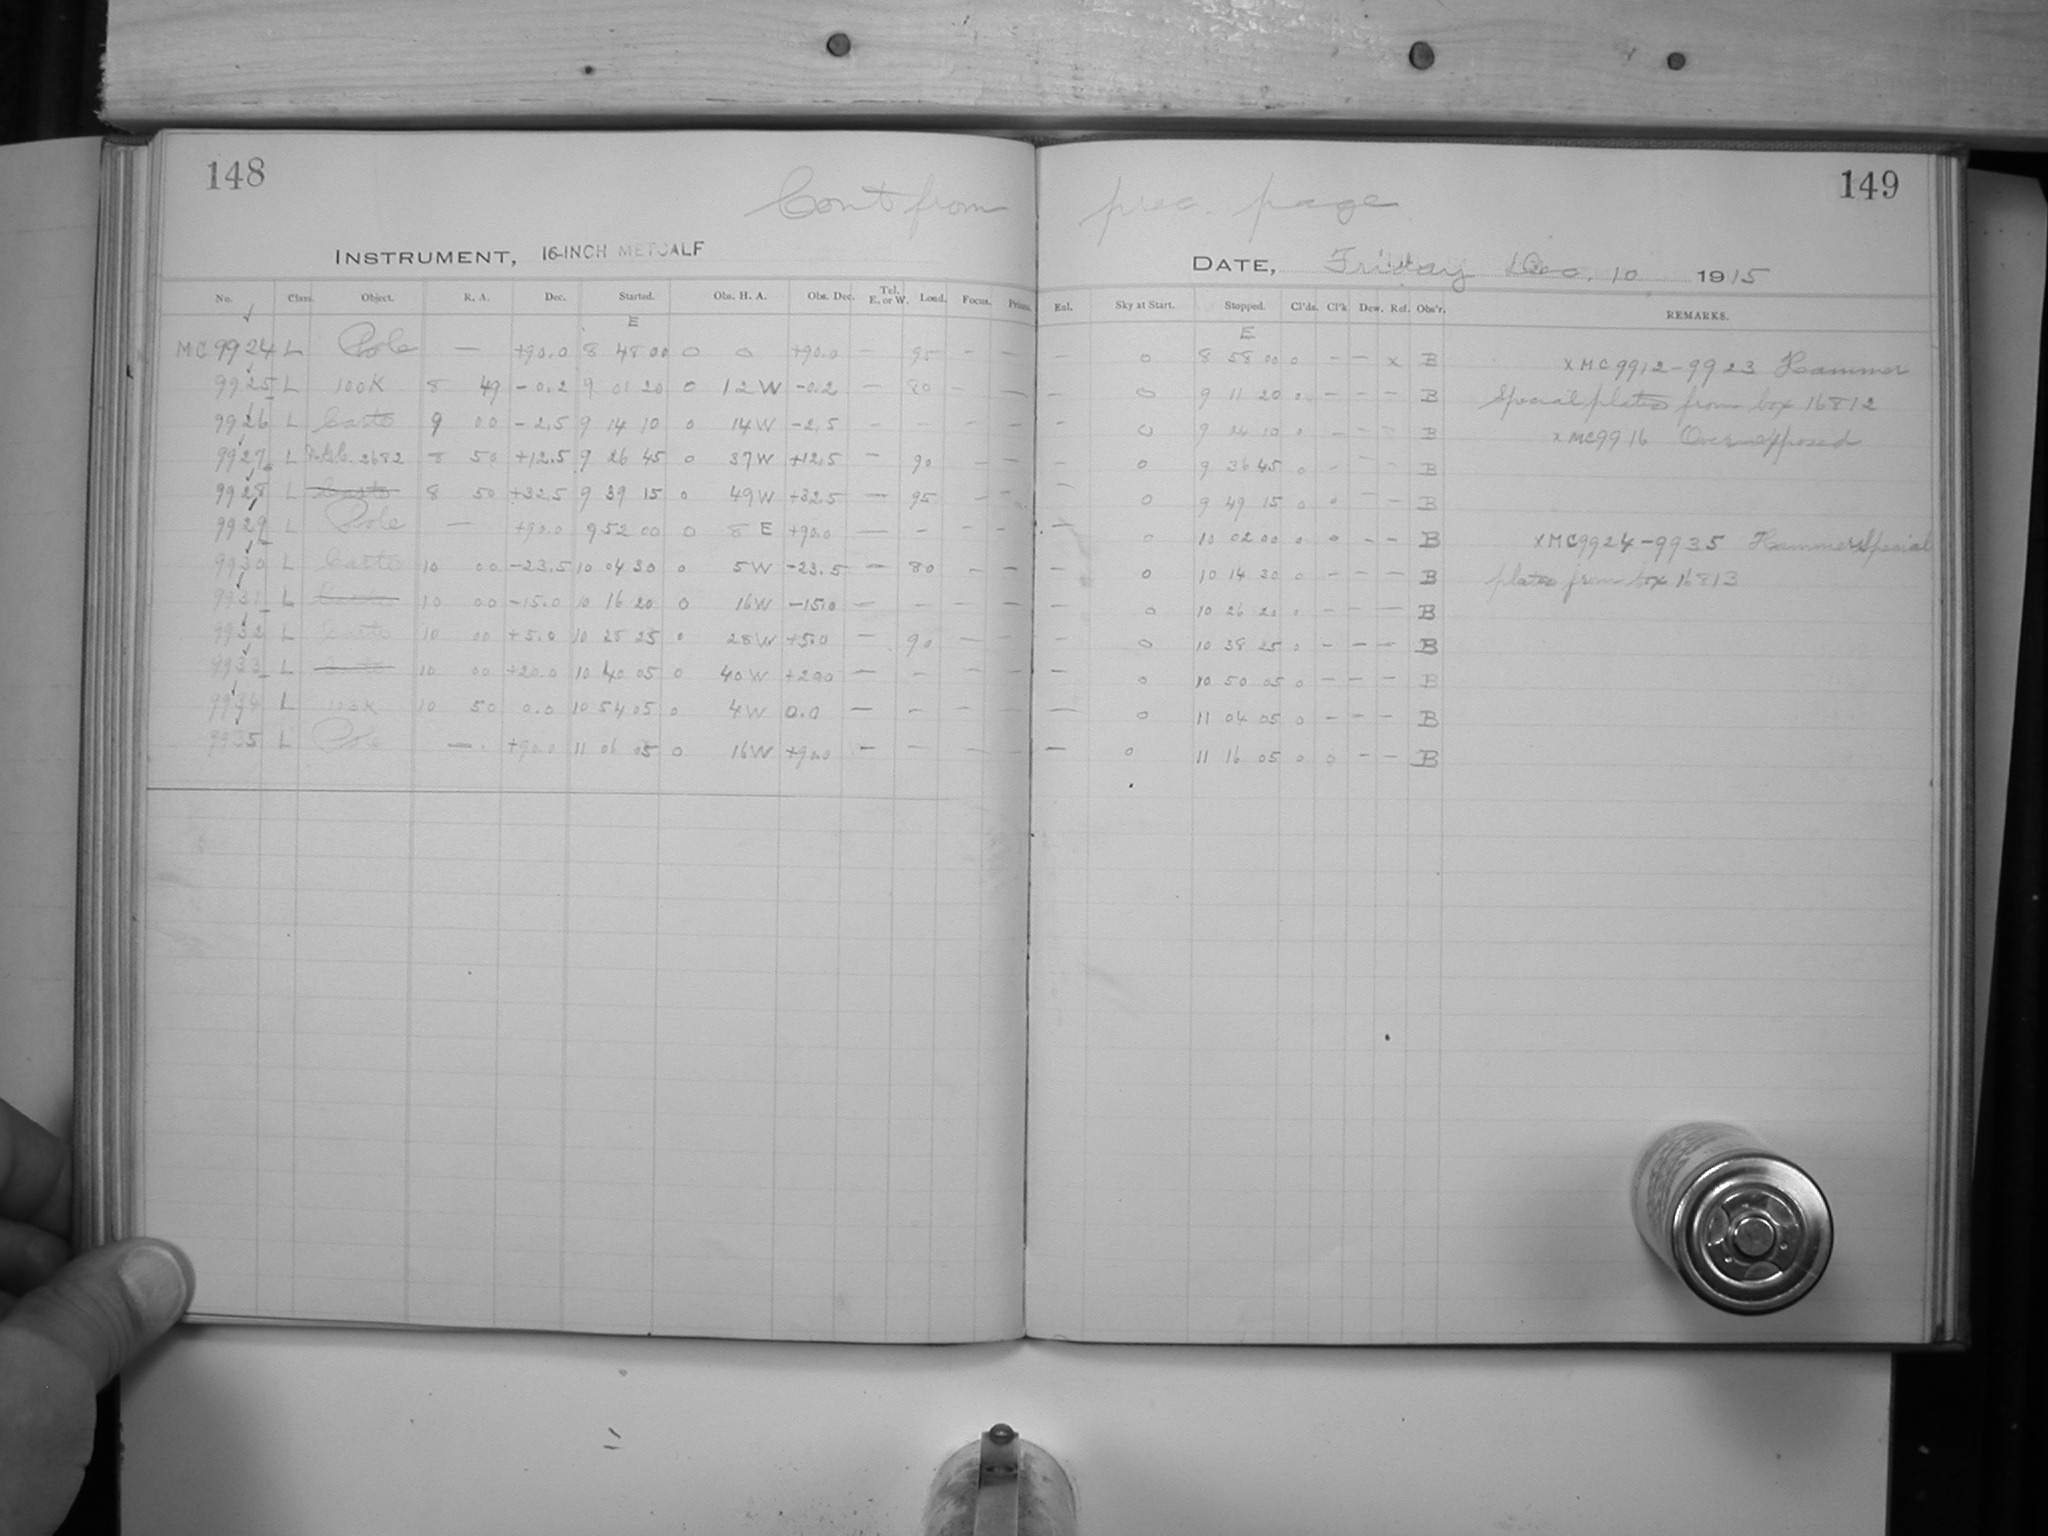 148
149
Cont from prec. page
INSTRUMENT, 16-INCH METCALF
DATE, Friday Dec. 10 1915
No. Class. Object. R. A. Dec. Started. Obs. H. A. Obs. Dec. Tel. E. or W. Load. Focus. Prism. Enl. Sky at Start. Stopped. Cl'ds. Cl'k Dew. Ref. Obs'r. REMARKS.
E E
MC 9924 L Pole — +90.0 8 48 00 0 0 +90.0 — 95 — — — 0 8 58 00 0 — — x B x MC 9912-9923 Hammer
9925 L 100K 8 49 -0.2 9 01 20 0 12 W -0.2 — 80 — — — 0 9 11 20 0 — — — B Special plates from box 16812
9926 L Carto 9 00 -2.5 9 14 10 0 14 W -2.5 — — — — — 0 9 24 10 0 — — — B x MC 9916 Over exposed
9927 L N.G.C. 2682 8 50 +12.5 9 26 45 0 37 W +12.5 — 90 — — — 0 9 36 45 0 — — — B
9928 L Carto 8 50 +32.5 9 39 15 0 49 W +32.5 — 95 — — — 0 9 49 15 0 0 — — B
9929 L Pole — +90.0 9 52 00 0 8 E +90.0 — — — — — 0 10 02 00 0 0 — — B x MC 9924-9935 Hammer Special
9930 L Carto 10 00 -23.5 10 04 30 0 5 W -23.5 — 80 — — — 0 10 14 30 0 — — — B plates from box 16813
9931 L Carto 10 00 -15.0 10 16 20 0 16 W -15.0 — — — — — 0 10 26 20 0 — — — B
9932 L Carto 10 00 +5.0 10 25 25 0 28 W +5.0 — 90 — — — 0 10 38 25 0 — — — B
9933 L Carto 10 00 +20.0 10 40 05 0 40 W +20.0 — — — — — 0 10 50 05 0 — — — B
9934 L 103K 10 50 0.0 10 54 05 0 4 W 0.0 — — — — — 0 11 04 05 0 — — — B
9935 L Pole — +90.0 11 06 05 0 16 W +90.0 — — — — — 0 11 16 05 0 0 — — B